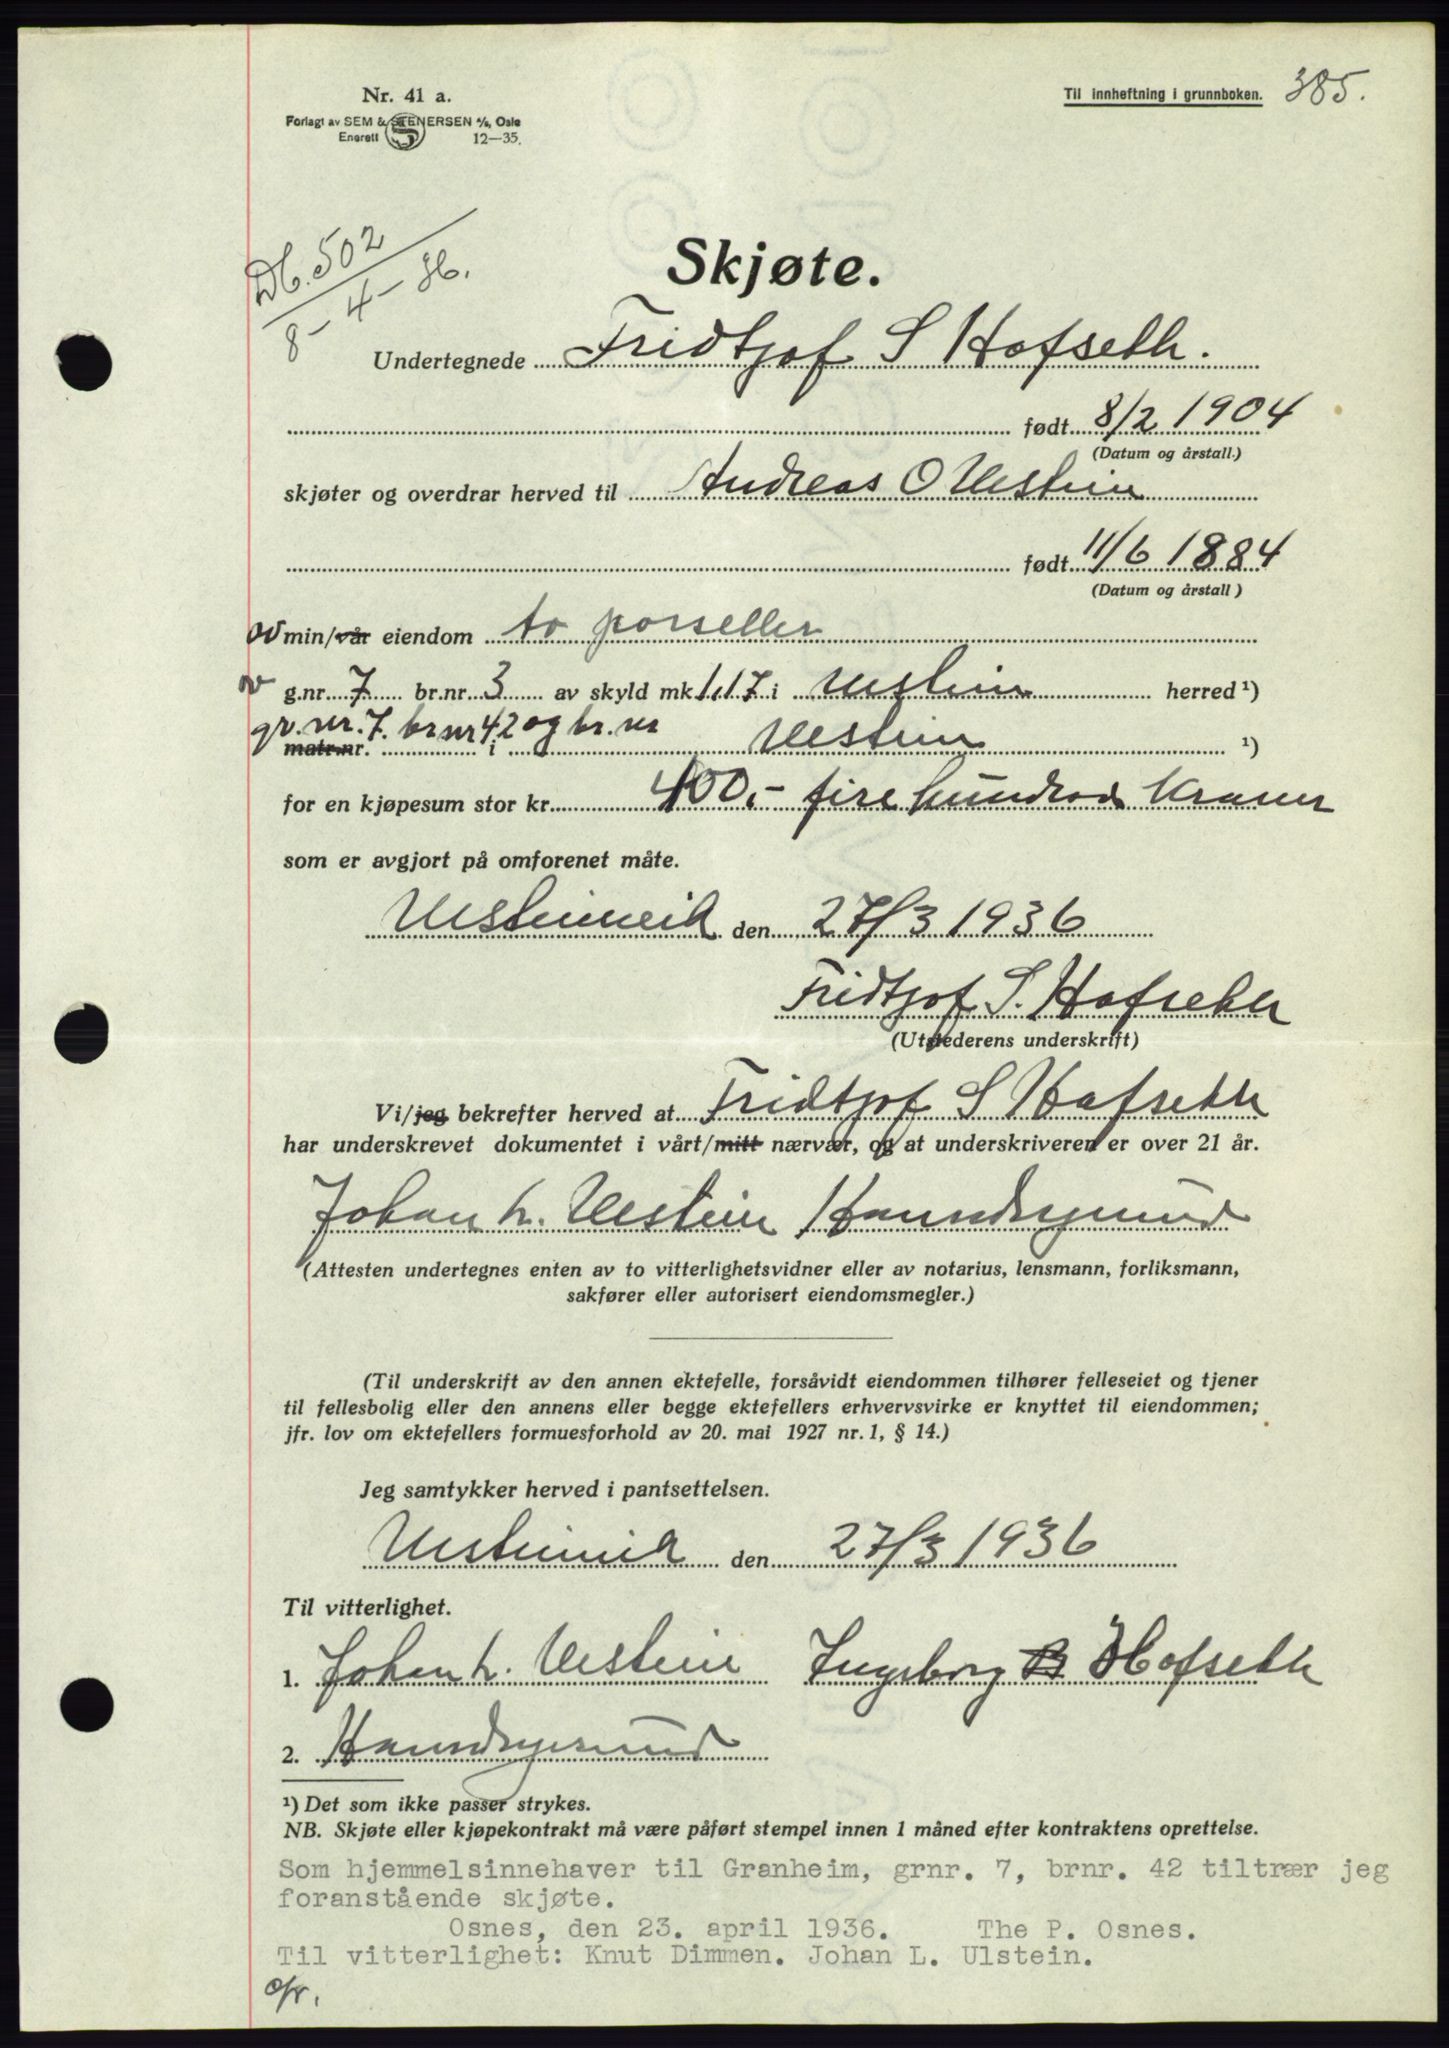 385.
Nr. 41 a.
Til innheftning i grunnboken.
Forlagt av SEM & STENERSEN A/S, Oslo
Enerett 12—35.
Db. 502
8-4-36.
Skjøte.
Undertegnede Fridtjof S Hofseth.
født 8/2 1904
(Datum og årstall.)
skjøter og overdrar herved til Andreas O Ulstein
født 11/6 1884
(Datum og årstall)
av min/vår eiendom to parseller
av g.nr. 7 br.nr. 3 av skyld mk 1,17 i Ulstein herred ¹)
gr.nr. 7. br nr 42 og br. nr
matr.nr. i Ulstein ¹)
for en kjøpesum stor kr. 400,- fire hundrede kroner
som er avgjort på omforenet måte.
Ulsteinvik den 27/3 1936
Fridtjof S. Hofseth
(Utstederens underskrift)
Vi/jeg bekrefter herved at Fridtjof S Hofseth
har underskrevet dokumentet i vårt/mitt nærvær, og at underskriveren er over 21 år.
Johan L. Ulstein
(Attesten undertegnes enten av to vitterlighetsvidner eller av notarius, lensmann, forliksmann,
sakfører eller autorisert eiendomsmegler.)
(Til underskrift av den annen ektefelle, forsåvidt eiendommen tilhører felleseiet og tjener
til fellesbolig eller den annens eller begge ektefellers erhvervsvirke er knyttet til eiendommen;
jfr. lov om ektefellers formuesforhold av 20. mai 1927 nr. 1, § 14.)
Jeg samtykker herved i pantsettelsen.
Ulsteinvik den 27/3 1936
Til vitterlighet.
1. Johan L. Ulstein Ingeborg Hofseth
2.
¹) Det som ikke passer strykes.
NB. Skjøte eller kjøpekontrakt må være påført stempel innen 1 måned efter kontraktens oprettelse.
Som hjemmelsinnehaver til Granheim, grnr. 7, brnr. 42 tiltrær jeg
foranstående skjøte.
Osnes, den 23. april 1936. The P. Osnes.
Til vitterlighet: Knut Dimmen. Johan L. Ulstein.